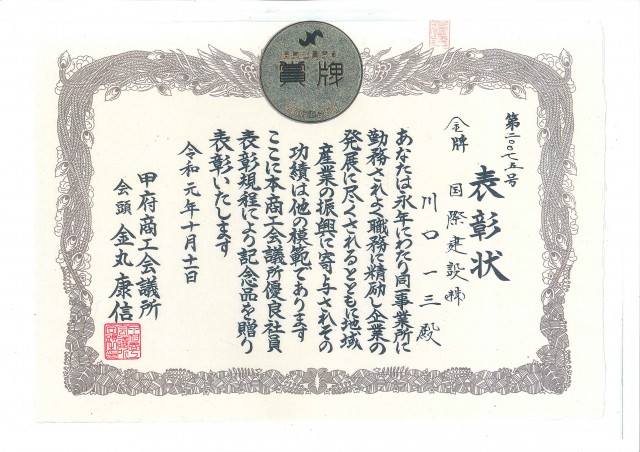 賞牌
第二〇〇七五号
表彰状
金牌 国際建設㈱
川口一三殿
あなたは永年にわたり同事業所に
勤務されよく職務に精励し企業の
発展に尽くされるとともに地域
産業の振興に寄与されその
功績は他の模範であります
ここに本商工会議所優良社員
表彰規程により記念品を贈り
表彰いたします
令和元年十月十一日
甲府商工会議所
会頭 金丸康信